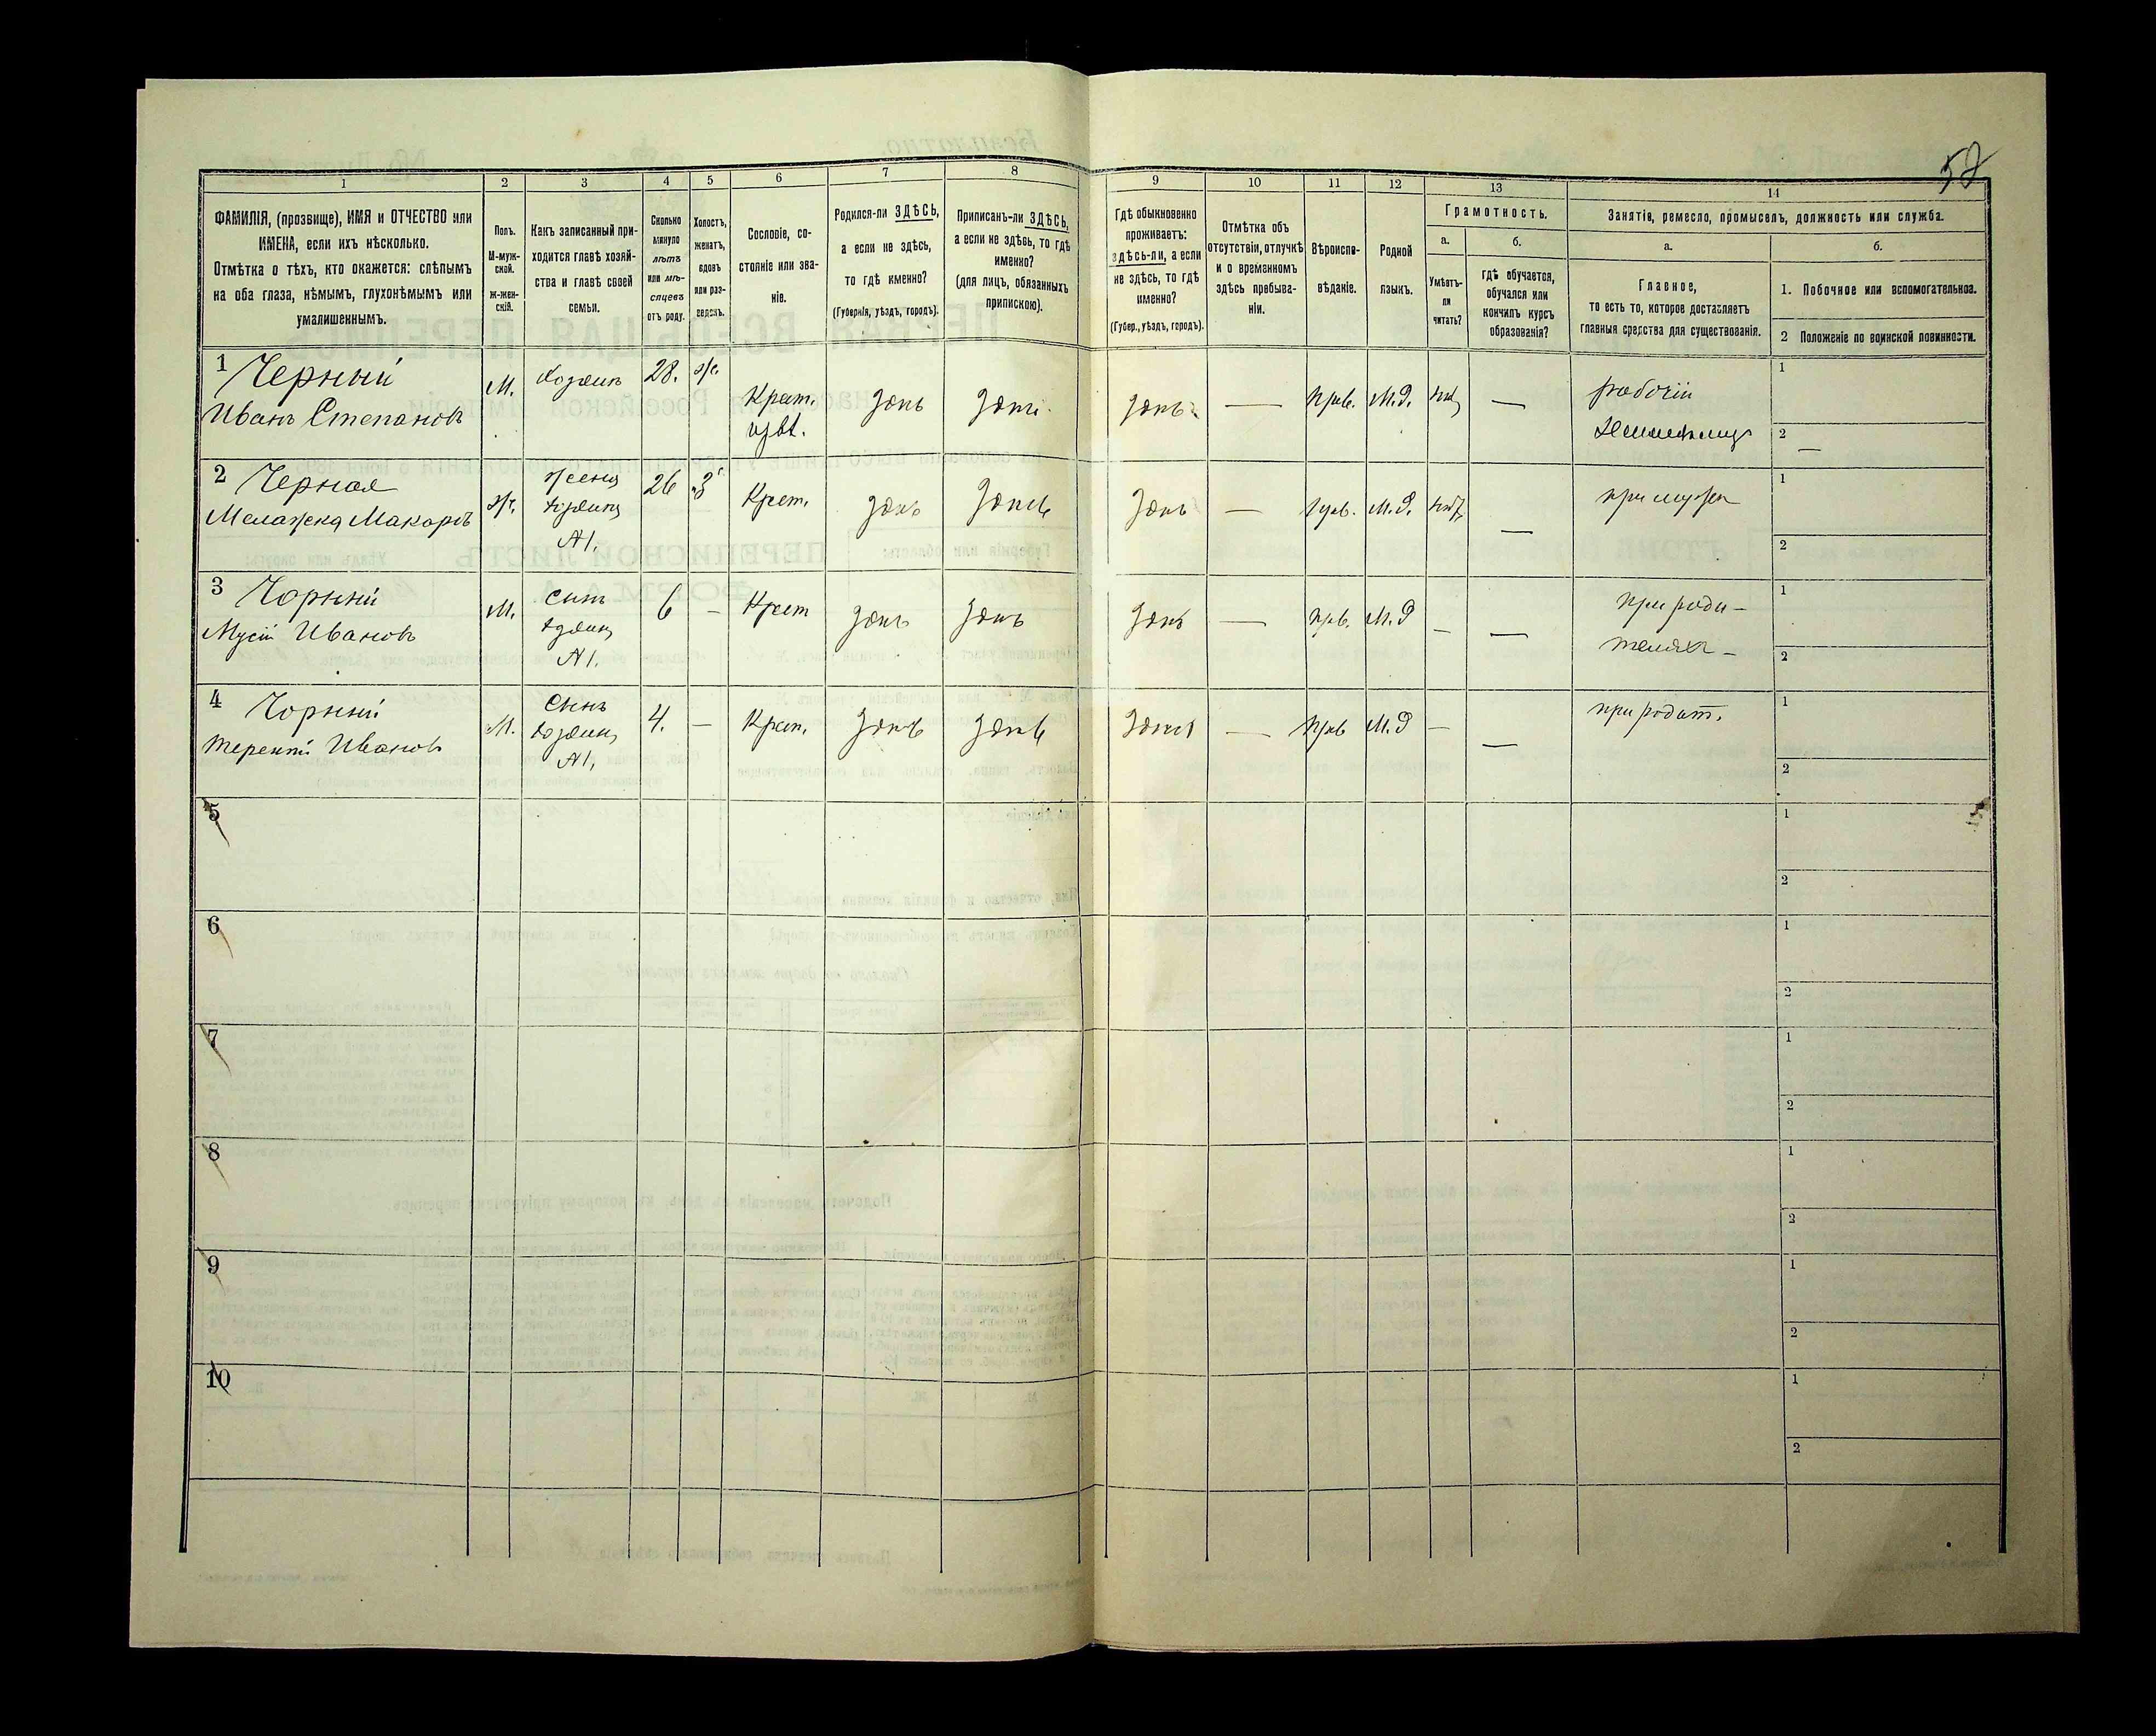 58
1 2 3 4 5 6 7 8 9 10 11 12 13 14
ФАМИЛІЯ, (прозвище), ИМЯ и ОТЧЕСТВО или
ИМЕНА, если ихъ нѣсколько.
Отмѣтка о тѣхъ, кто окажется: слѣпымъ
на оба глаза, нѣмымъ, глухонѣмымъ или
умалишеннымъ.
Полъ.
М-муж-
ской.
ж-жен-
скій.
Какъ записанный при-
ходится главѣ хозяй-
ства и главѣ своей
семьи.
Сколько
минуло
лѣтъ
или мѣ-
сяцевъ
отъ роду.
Холостъ,
женатъ,
вдовъ
или раз-
веденъ.
Сословіе, со-
стояніе или зва-
ніе.
Родился-ли ЗДѢСЬ,
а если не здѣсь,
то гдѣ именно?
(Губернія, уѣздъ, городъ).
Приписанъ-ли ЗДѢСЬ,
а если не здѣсь, то гдѣ
именно?
(для лицъ, обязанныхъ
припискою).
Гдѣ обыкновенно
проживаетъ:
здѣсь-ли, а если
не здѣсь, то гдѣ
именно?
(Губер., уѣздъ, городъ).
Отмѣтка объ
отсутствіи, отлучкѣ
и о временномъ
здѣсь пребыва-
ніи.
Вѣроиспо-
вѣданіе.
Родной
языкъ.
Грамотность.
а.
Умѣетъ-
ли
читать?
б.
гдѣ обучается,
обучался или
кончилъ курсъ
образованія?
Занятіе, ремесло, промыселъ, должность или служба.
а.
Главное,
то есть то, которое доставляетъ
главныя средства для существованія.
б.
1. Побочное или вспомогательное.
2 Положеніе по воинской повинности.
1 Черный
Иванъ Степановъ
М.
хозяинъ
28.
ж.
Крест.
здѣсь
здѣсь
здѣсь
—
прав.
М.Р.
—
рабочій
1
2
—
2 Черная
Макаровъ
ж.
жена
хозяина
№1.
26
З
Крест.
здѣсь
здѣсь
здѣсь
—
прав.
М.Р.
—
при мужѣ
1
2
3 Чорный
Мусій Ивановъ
М.
сынъ
хозяина
№1.
6
—
Крест
здѣсь
здѣсь
здѣсь
—
прав.
М.Р
—
—
при роди-
теляхъ
1
2
4 Чорный
Терентій Ивановъ
М.
Сынъ
хозяина
№1,
4.
—
Крест.
здѣсь
здѣсь
здѣсь
—
прав
М.Р
—
—
при родит.
1
2
5
1
2
6
1
2
7
1
2
8
1
2
9
1
2
10
1
2